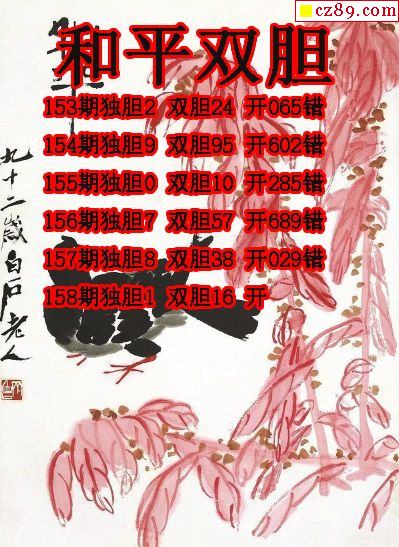 cz89.com
和平双胆
153期独胆2 双胆24 开065错
154期独胆9 双胆95 开602错
155期独胆0 双胆10 开285错
156期独胆7 双胆57 开689错
157期独胆8 双胆38 开029错
158期独胆1 双胆16 开
九十二岁白石老人